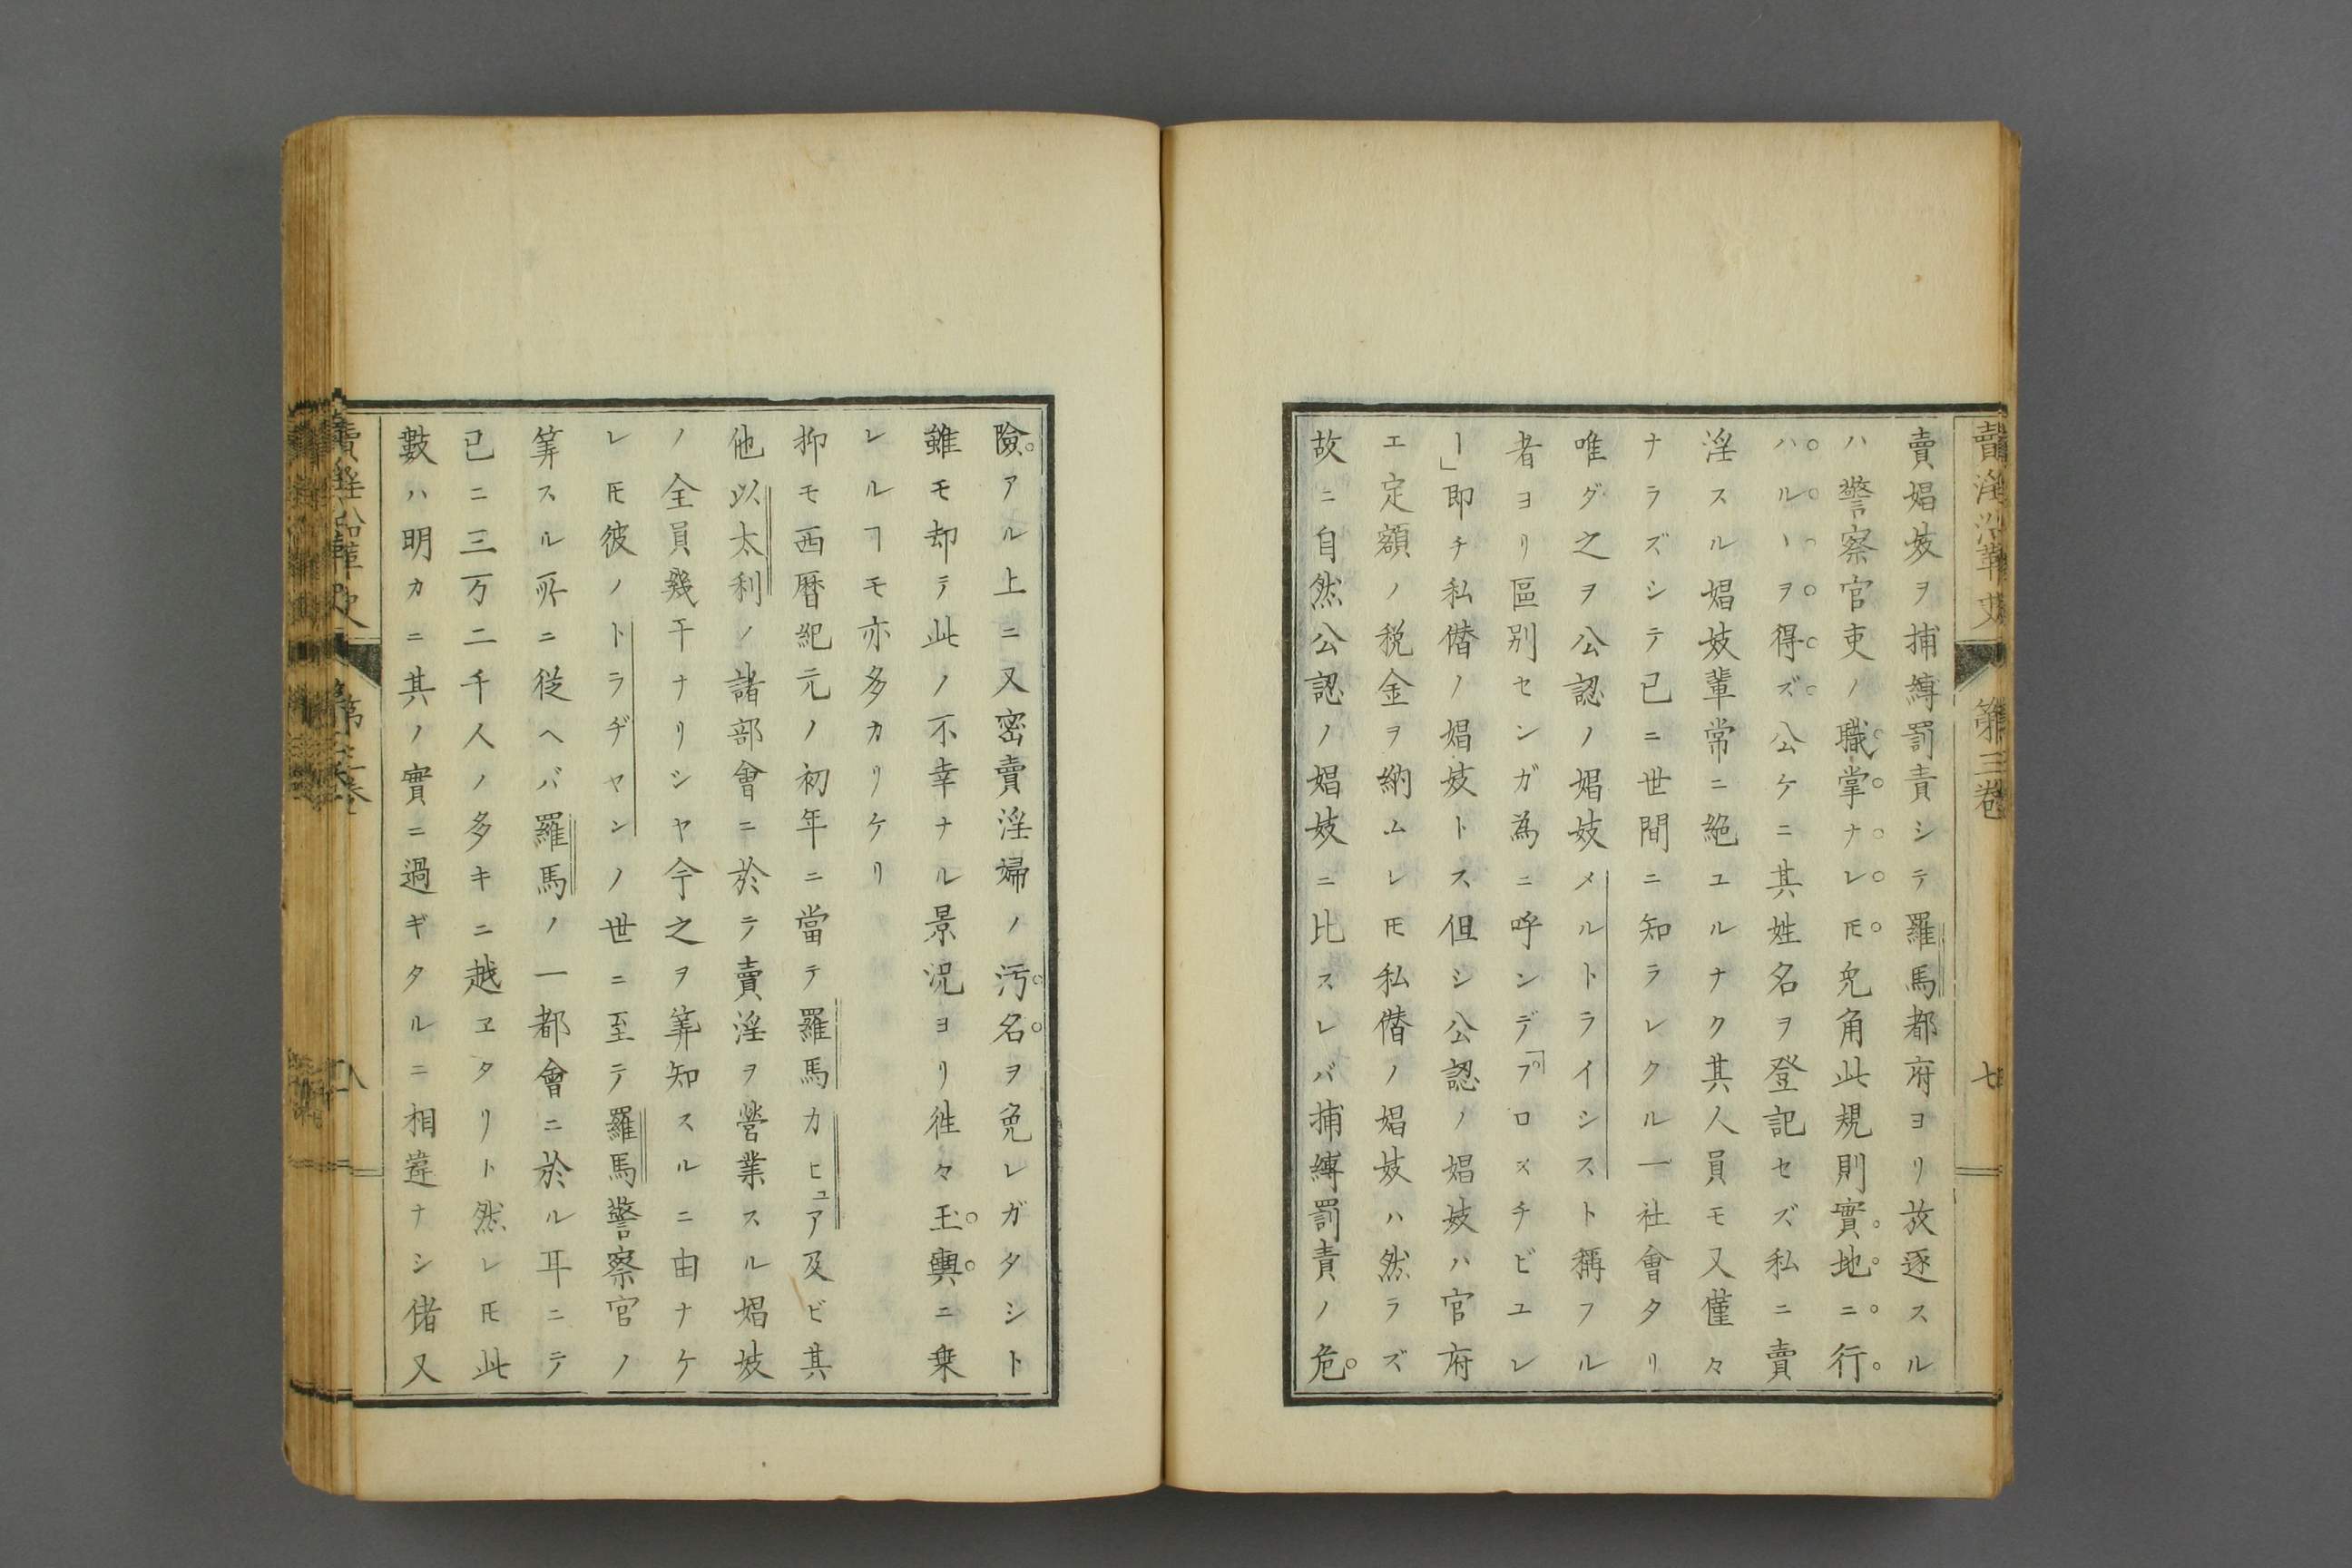 賣淫沿革史　第三卷　七
賣娼妓ヲ捕縛罰責シテ羅馬都府ヨリ放逐スル
ハ警察官吏ノ職掌ナレ𪜈兔角此規則實地ニ行
ハルヽヲ得ズ公ケニ其姓名ヲ登記セズ私ニ賣
淫スル娼妓輩常ニ絶ユルナク其人員モ又僅々
ナラズシテ已ニ世間ニ知ラレクル一社會タリ
唯グ之ヲ公認ノ娼妓メルトライシスト稱フル
者ヨリ區別センガ為ニ呼ンデ「プロスチビユレ
ー」即チ私僣ノ娼妓トス但シ公認ノ娼妓ハ官府
エ定額ノ税金ヲ納ムレ𪜈私僣ノ娼妓ハ然ラズ
故ニ自然公認ノ娼妓ニ比スレバ捕縛罰責ノ危
險アル上ニ又密賣淫婦ノ汚名ヲ免レガタシト
雖モ却テ此ノ不幸ナル景況ヨリ徃々玉輿ニ乗
レルヿモ亦多カリケリ
抑モ西暦紀元ノ初年ニ當テ羅馬カヒュア及ビ其
他以太利ノ諸部會ニ於テ賣淫ヲ營業スル娼妓
ノ全員幾干ナリシヤ今之ヲ筭知スルニ由ナケ
レ𪜈彼ノトラヂヤンノ世ニ至テ羅馬警察官ノ
筭スル所ニ従ヘバ羅馬ノ一都會ニ於ル耳ニテ
已ニ三万二千人ノ多キニ越ヱタリト然レ𪜈此
數ハ明カニ其ノ實ニ過ギタルニ相違ナシ偖又
賣淫沿革史　第三卷　八